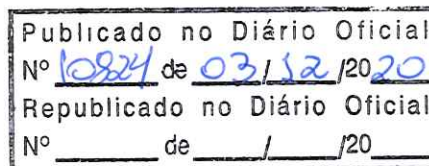 Publicado no Diário Oficial
Nº 10824 de 03/12/2020
Republicado no Diário Oficial
Nº ______ de _____/_____/20____